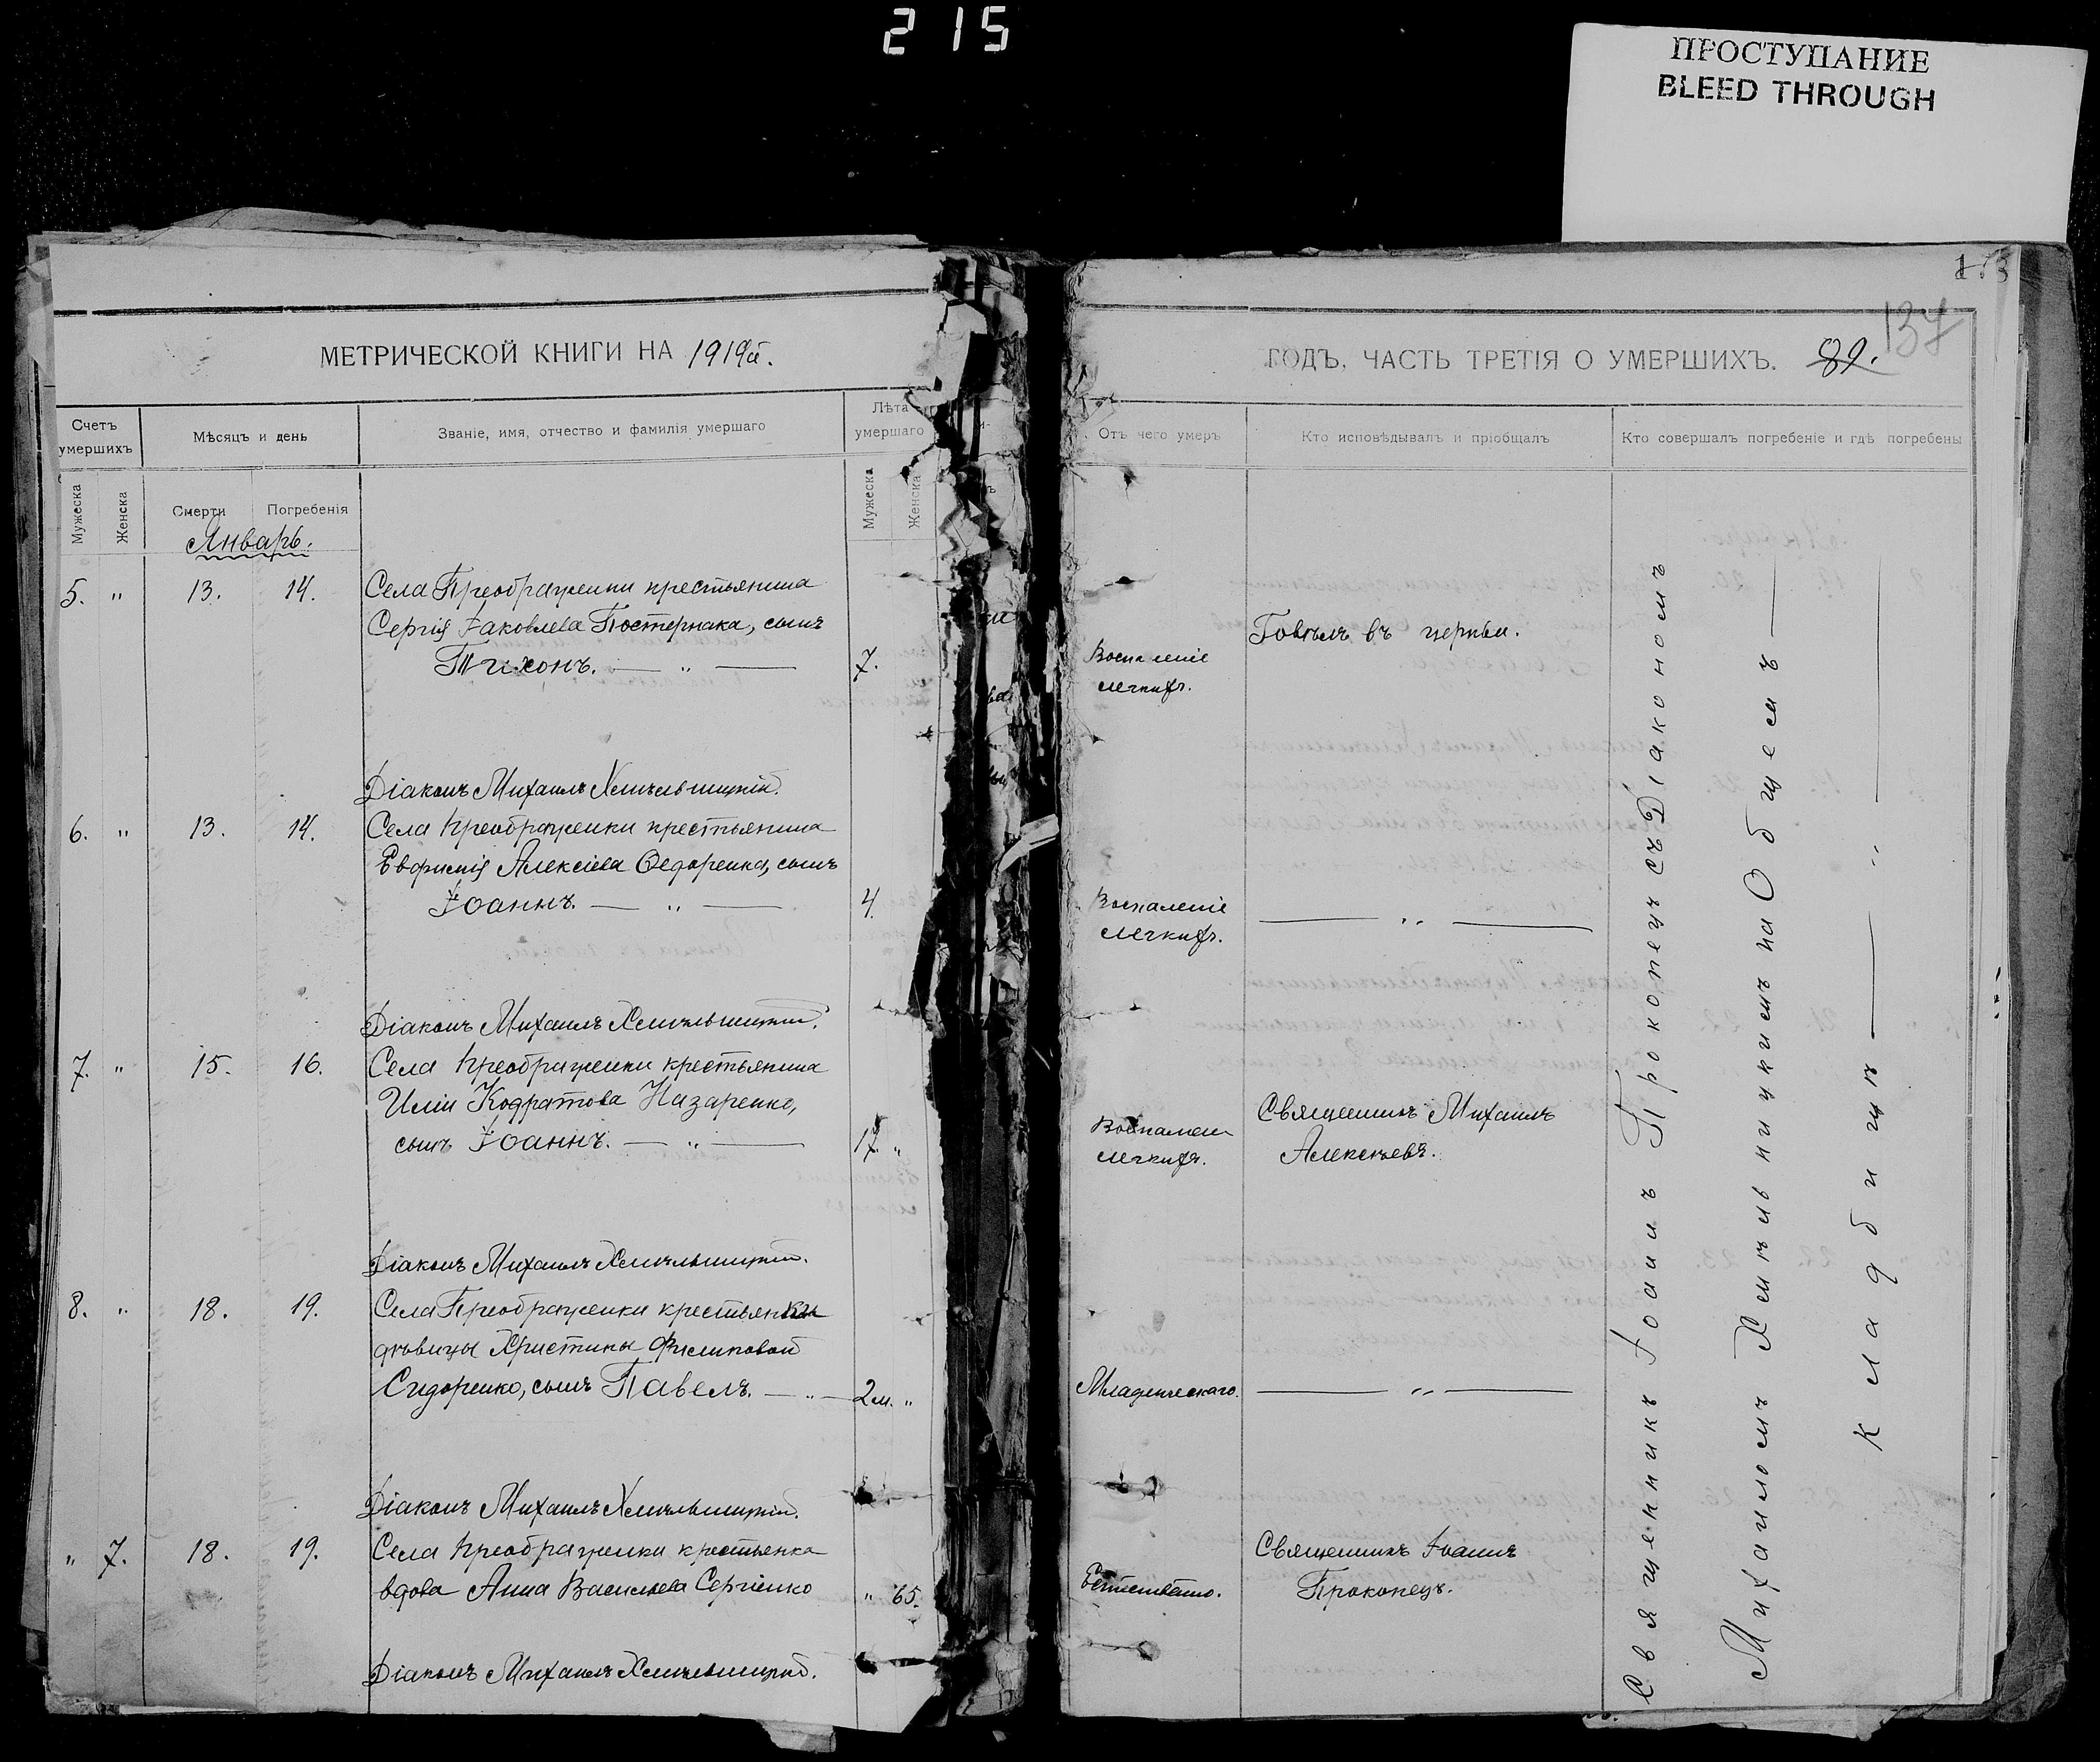 215
ПРОСТУПАНИЕ
BLEED THROUGH
МЕТРИЧЕСКОЙ КНИГИ НА 1919й.
Счетъ умершихъ
Мѣсяцъ и день
Званіе, имя, отчество и фамилія умершаго
Лѣта умершаго
Мужеска
Женска
Смерти
Погребенія
Мужеска
Женска
Январь.
5. " 13. 14. Села Преображенки крестьянина
Сергія Іаковлева Постернака, сынъ
Тихонъ. — " — 7.
Діаконъ Михаилъ Хмѣльницкій.
6. " 13. 14. Села Преображенки крестьянина
Евфимія Алексіева Ѳедоренка, сынъ
Іоаннъ. — " — 4.
Діаконъ Михаилъ Хмѣльницкій.
7. " 15. 16. Села Преображенки крестьянина
Иліи Кодратова Назаренко,
сынъ Іоаннъ. — " — 17. "
Діаконъ Михаилъ Хмѣльницкій.
8. " 18. 19. Села Преображенки крестьянки
дѣвицы Христины Филиповой
Сидоренко, сынъ Павелъ. — " — 2 м. "
Діаконъ Михаилъ Хмѣльницкій.
" 7. 18. 19. Села Преображенки крестьянка
вдова Анна Васильева Сергіенко " 65.
Діаконъ Михаилъ Хмѣльницкій.
137
ГОДЪ, ЧАСТЬ ТРЕТІЯ О УМЕРШИХЪ. 89.
Отъ чего умеръ
Кто исповѣдывалъ и пріобщалъ
Кто совершалъ погребеніе и гдѣ погребены
Говѣлъ въ церкви.
Воспаленіе
легкихъ.
Воспаленіе — " —
легкихъ.
Священникъ Михаилъ
Воспален
Алексѣевъ.
легкихъ.
Младенческаго. — " —
Священникъ Іоаннъ
Естественно.
Прокопецъ.
Священникъ Іоаннъ Прокопецъ съ Діакономъ
Михаиломъ Хмѣльницкимъ на Общемъ —
кладбищѣ — " —